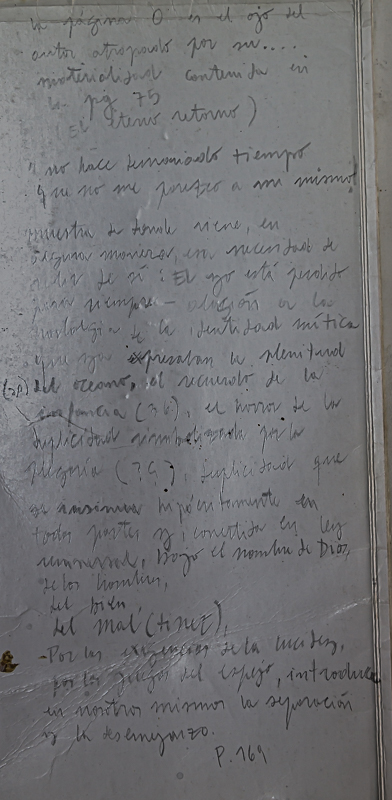 la página 0 es el ojo del
autor atrapado por su....
materialidad contenida en
la pg 75
(El eterno retorno)
"no hace demasiado tiempo
que no me parezco a mi mismo"
muestra de donde viene, en
alguna manera, esa necesidad de
salir de sí: El yo está perdido
para siempre - alusión a la
nostalgia de la identidad mítica
que ya expresaban la plenitud
del oceano, el recuerdo de la
infancia (36), el horror de la
duplicidad simbolizada por la
(75), duplicidad que
se hipócritamente en
todas partes y, convertida en ley
universal, bajo el nombre de Dios,
de los hombres,
del bien,
del mal,
- Por las exigencias de la lucidez,
por los juegos del espejo, introduce
en nosotros mismos la separación
y la desemejanza.
P. 169